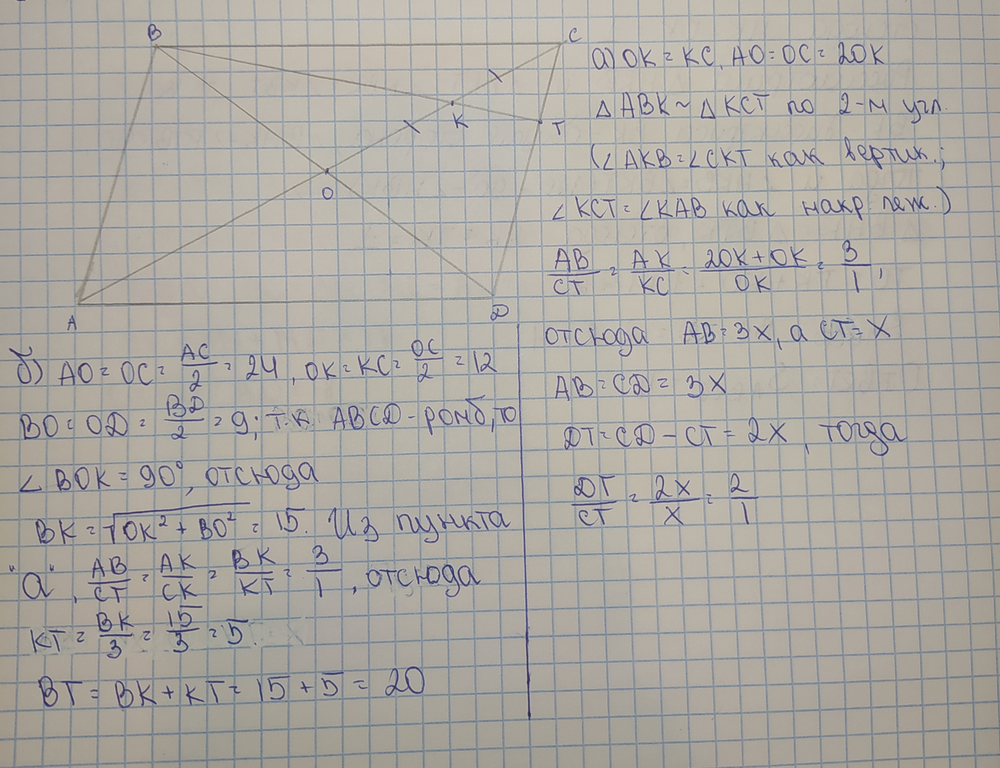 B
C
K
T
O
A
D
а) OK = KC, AO = OC = 2OK
△ABK ~ △KCT по 2-м угл.
(∠AKB = ∠CKT как вертик.;
∠KCT = ∠KAB как накр. леж.)
AB/CT = AK/KC = 2OK + OK/OK = 3/1,
отсюда AB = 3x, а CT = x
AB = CD = 3x
DT = CD - CT = 2x, тогда
DT/CT = 2x/x = 2/1
б) AO = OC = AC/2 = 24, OK = KC = OC/2 = 12
BO = OD = BD/2 = 9; т.к. ABCD - ромб, то
∠BOK = 90°, отсюда
BK = √OK² + BO² = 15. Из пункта
"а", AB/CT = AK/CK = BK/KT = 3/1, отсюда
KT = BK/3 = 15/3 = 5.
BT = BK + KT = 15 + 5 = 20